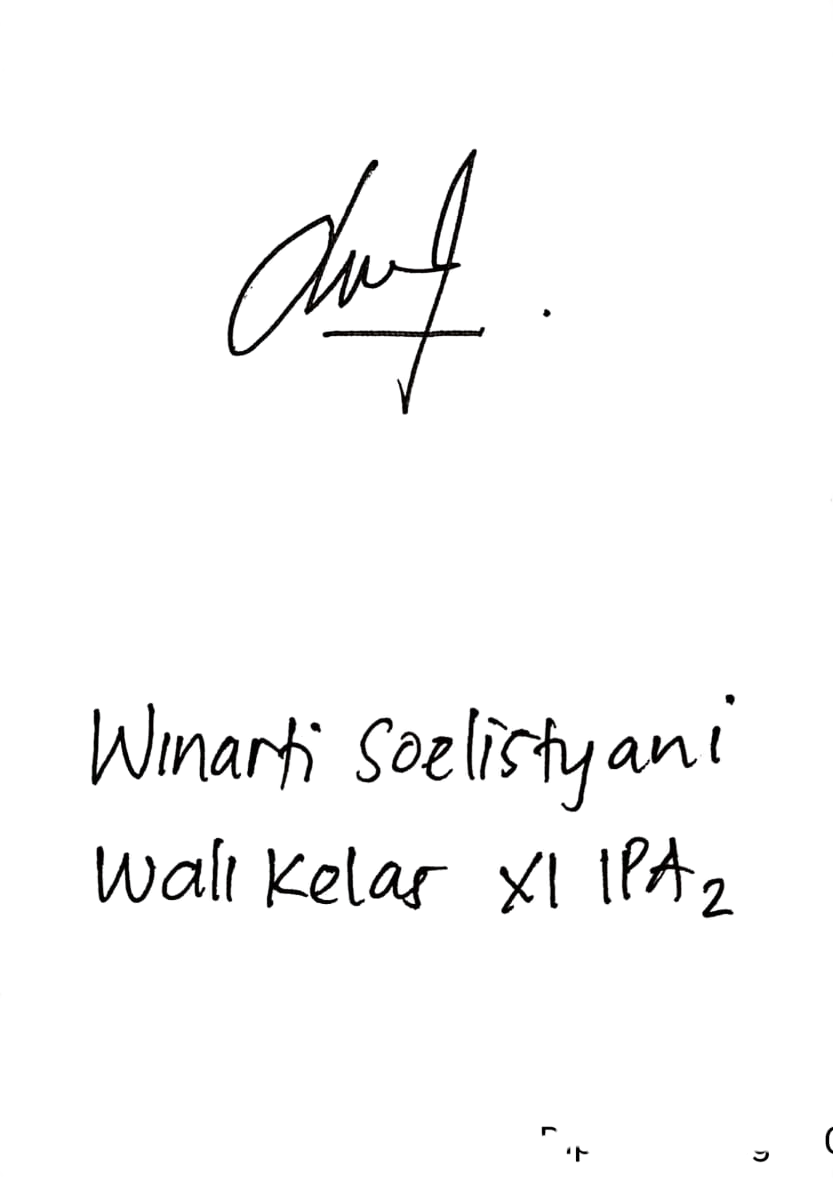 Winarti Soelistyani
Wali Kelas XI IPA 2